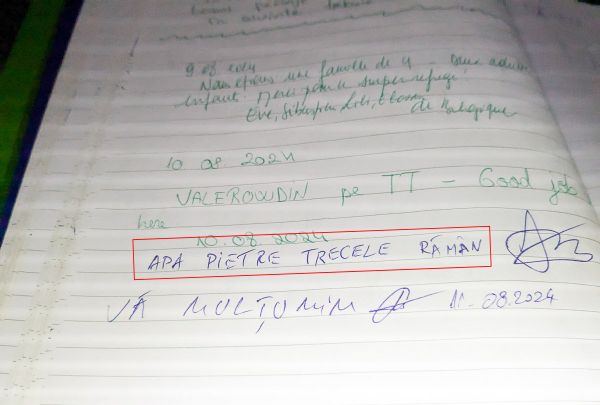 9 08 2024
Nous étions une famille de 4
enfants. Merci pour le super refuge!
Eve, Sébastien
de Belgique
10 08. 2024
VALEROUUDIN pe TT - Good job
here
10.08 2024
APA PIETRE TRECELE RĂMÂN
VĂ MULȚUMIM 11.08.2024